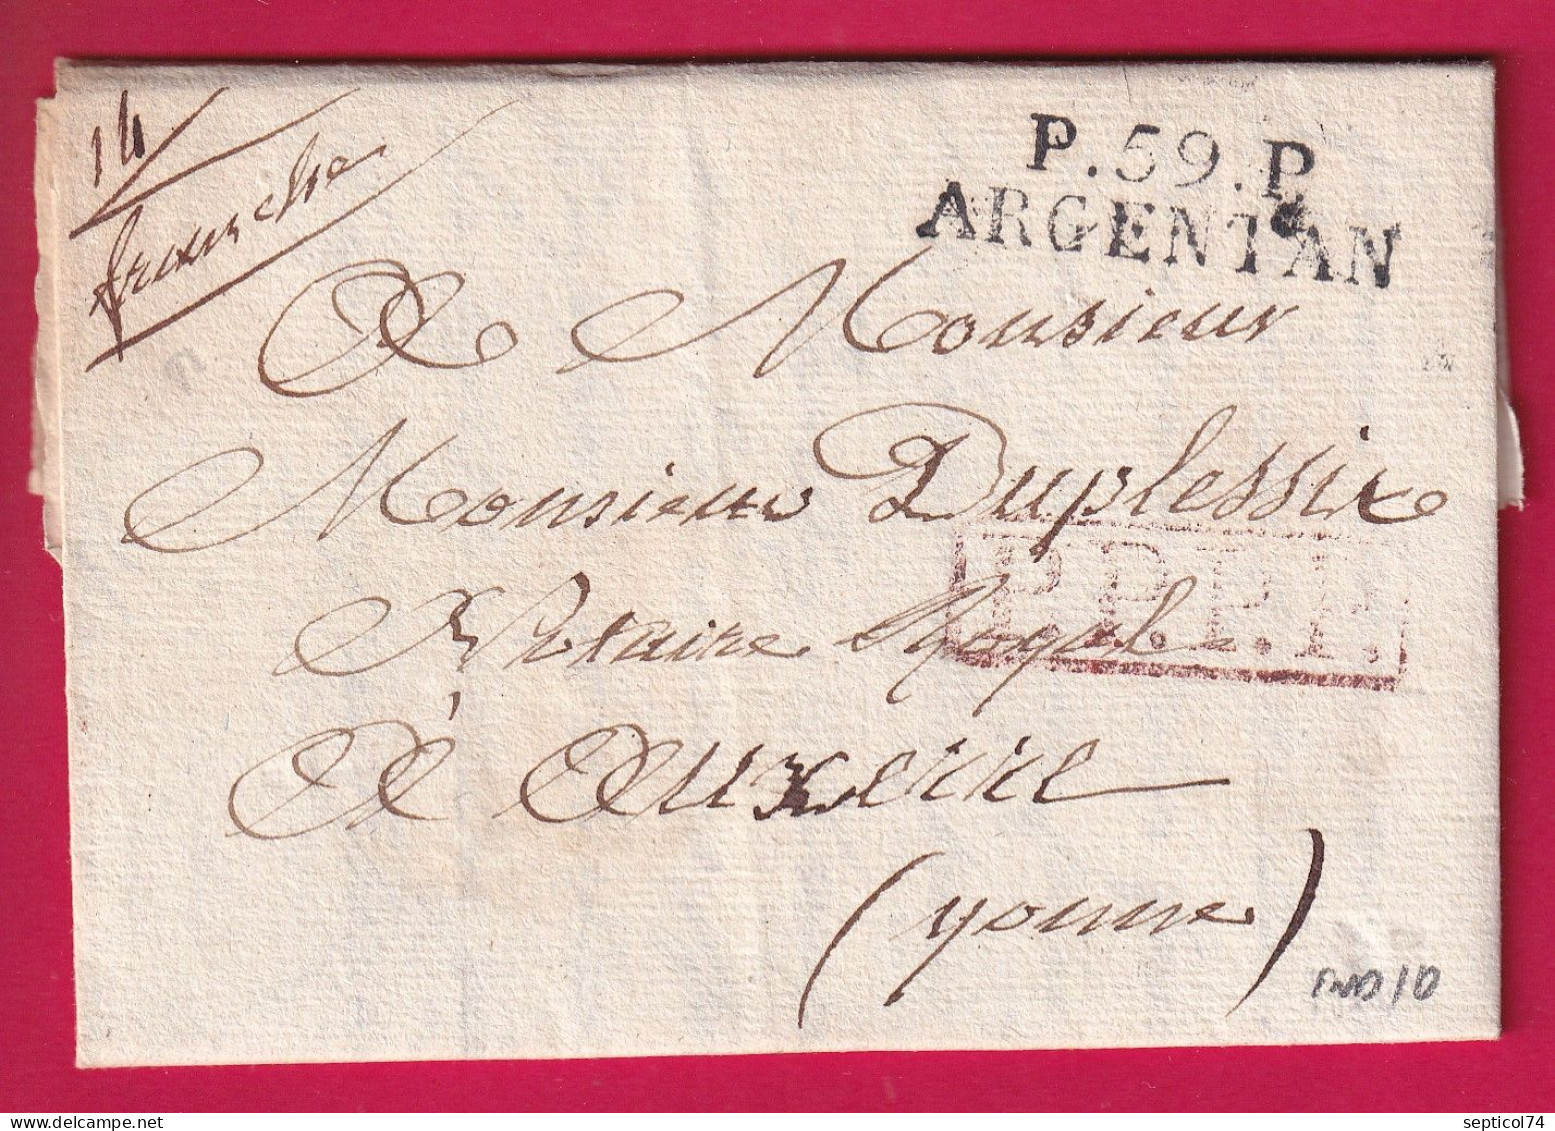 14
franche
P.59.P
ARGENTAN
A Monsieur
Monsieur Duplessix
P.P.P.P.
Notaire Royal
A Auxerre
(yonne)
septicol74